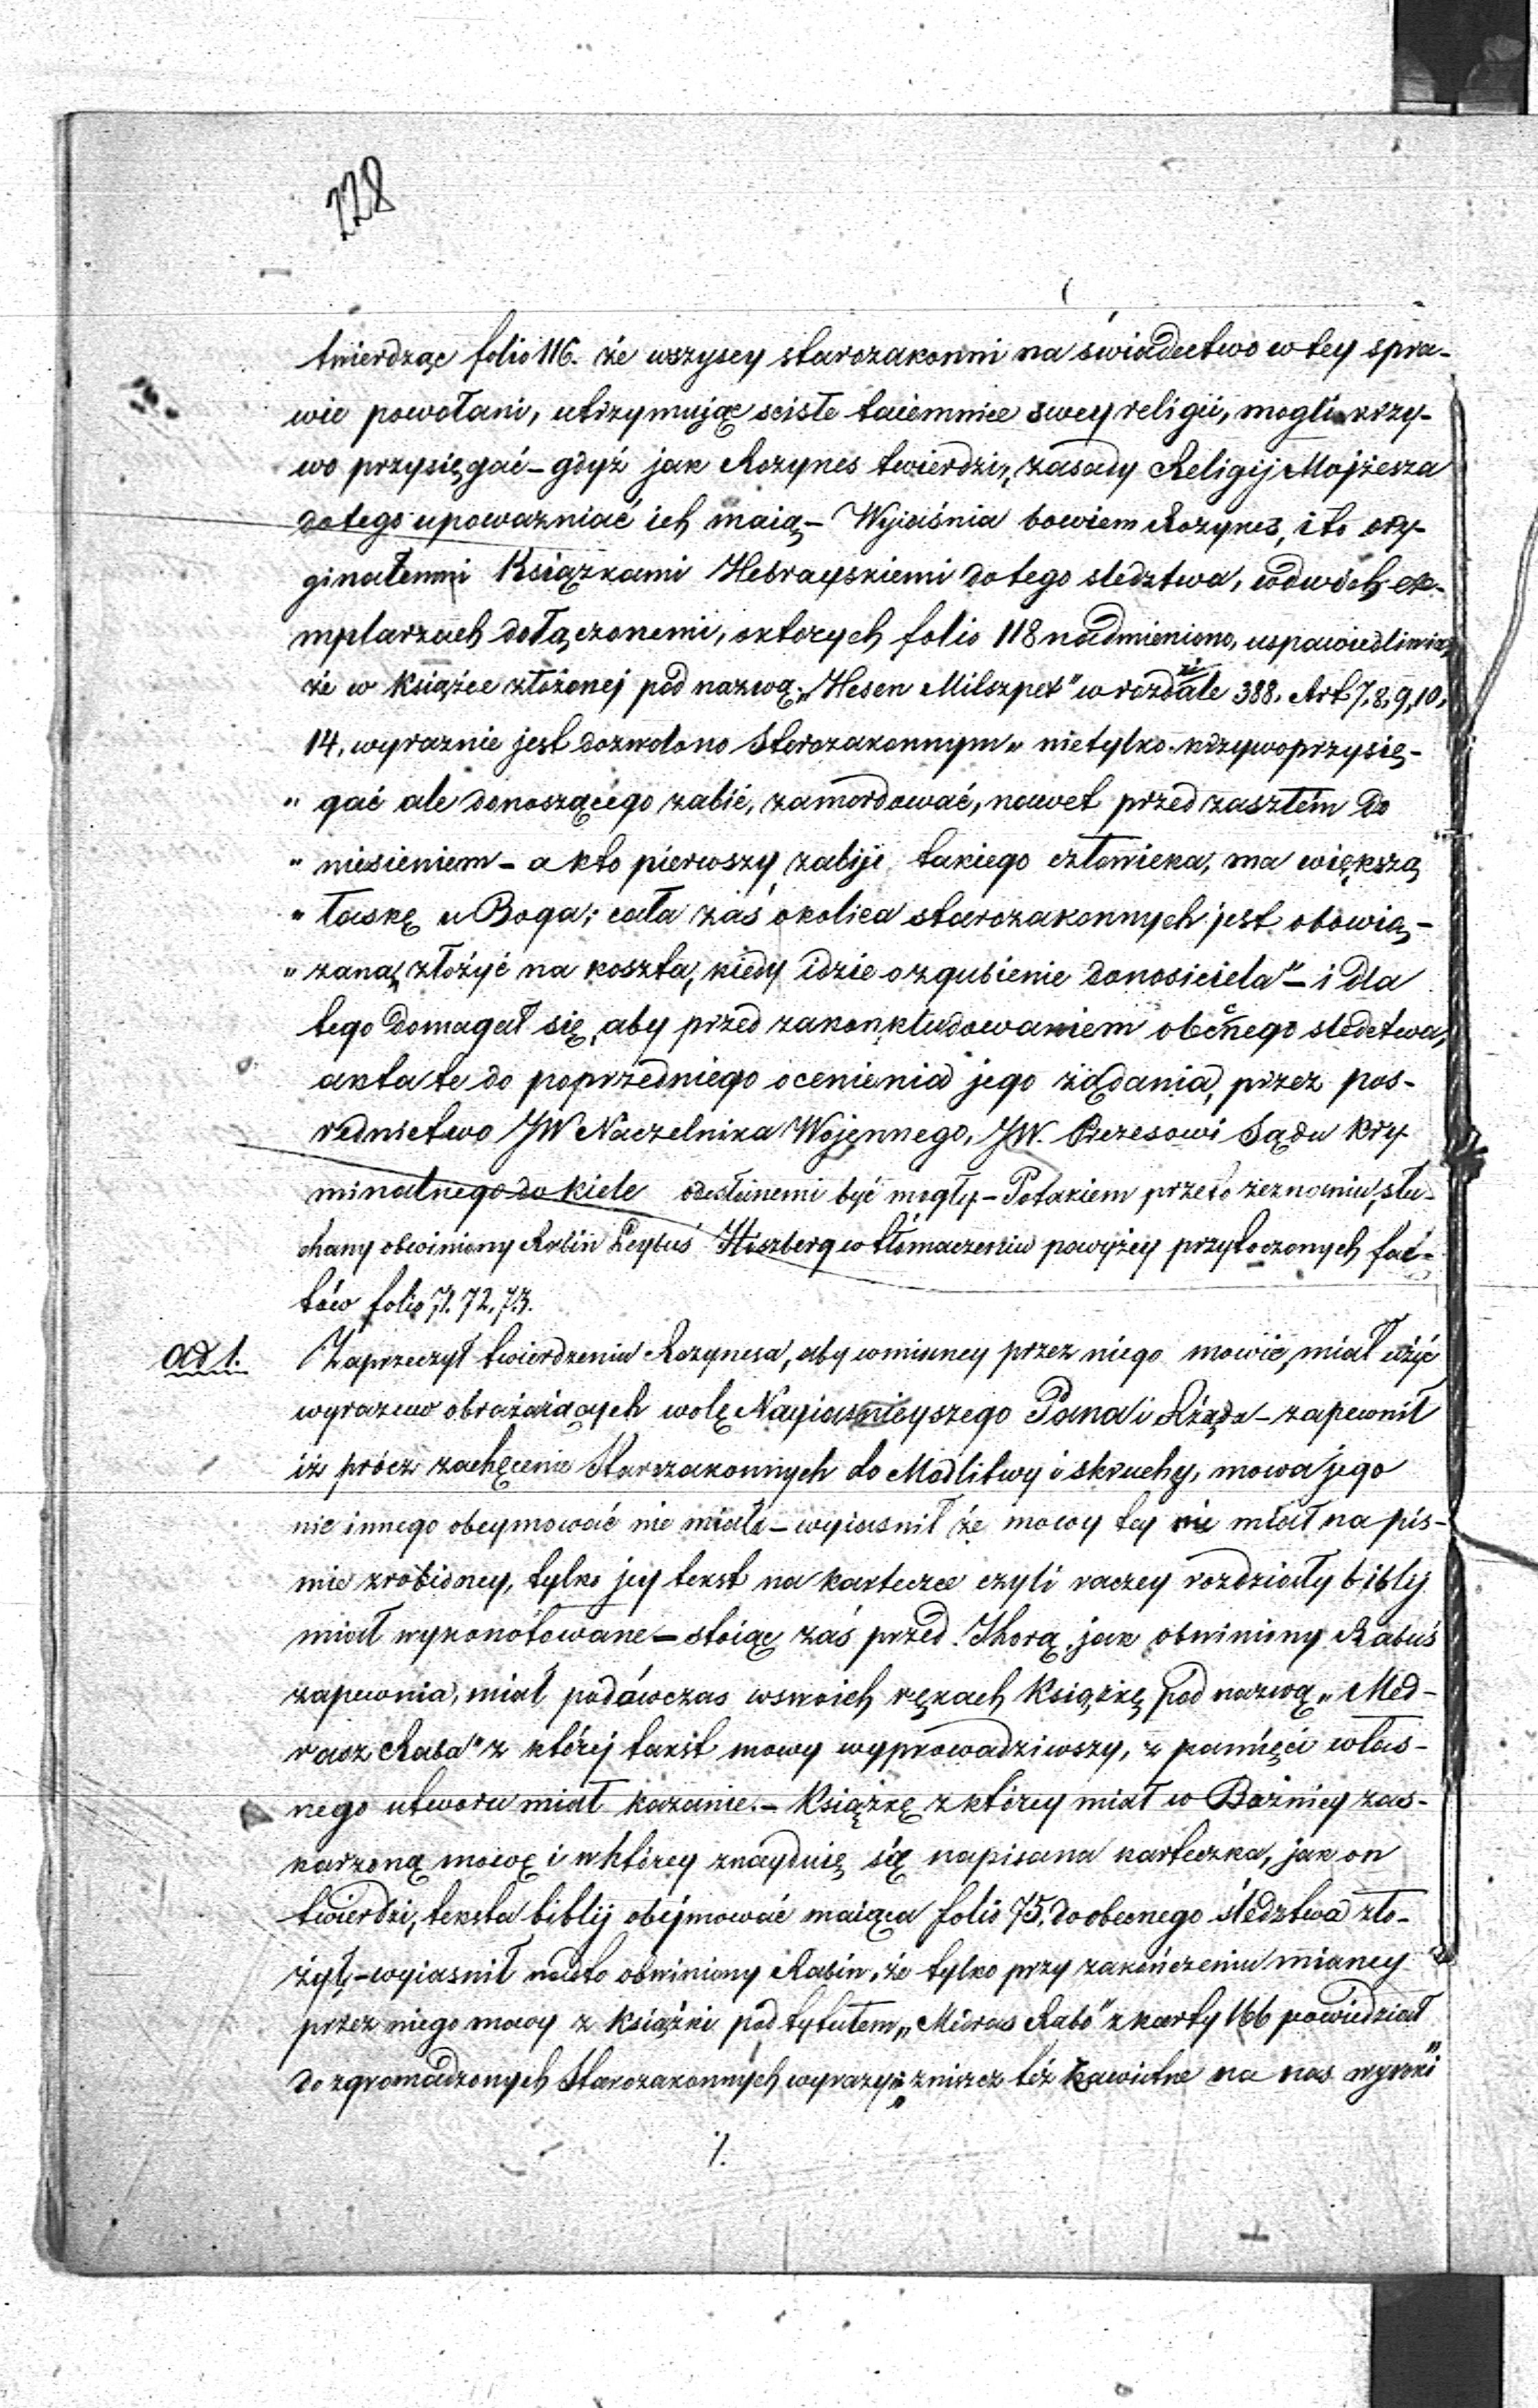 228
twierdząc folio 116. że wszyscy starozakonni na świadectwo w tey spra-
wie powołani, utrzymując sciśle taiemnice swey religii, mogli krzy-
wo przysięgać – gdyż jak Rozynes twierdzi, zasady Religij Mojżesza
do tego upoważniać ich maią – Wyjaśnia bowiem Rozynes, i to ory-
ginalenmi Książkami Hebrayskiemi do tego sledztwa, w dwóch ex-
mplarzach dołączonemi, o których folio 118 nadmieniono, uspawiedliwia,
że w książce złożonej pod nazwą „Hesen Milszpet" w rozdziale 388. Art 7, 8, 9, 10,
14, wyraznie jest dozwolono Starozakonnym „ nietylko krzywoprzysię-
„ gać ale donoszącego zabić, zamordować, nawet przed zaszłem do
„ niesieniem – a kto pierwszy zabije takiego człowieka, ma większą
„ łaskę u Boga; cała zaś okolica starozakonnych jest obowią-
„ zaną złożyć na koszta, kiedy idzie o zgubienie donosiciela" – i dla
tego domagał się, aby przed zakonkludowaniem obecnego sledctwa,
akta te do poprzedniego ocenienia jego żądania, przez pos-
rednictwo JW Naczelnika Wojennego, JW. Prezesowi Sądu Kry-
minalnego do Kielc odesłanemi być mogły – Po takiem przeto zeznaniu, słu-
chany obwiniony Rabin Leybuś Hiszberg w tłómaczeniu powyżey przytoczonych fac-
tów folio 71. 72. 73.
ad 1. Zaprzeczył twierdzenia Rozynesa, aby w mianey przez niego mowie, miał użyć
wyrazów obrażaiących wolę Nayiaśnieyszego Pana i Rządu – zapewnił
iż prócz zachęcenia Starozakonnych do Modlitwy i skruchy, mowa jego
nic innego obeymować nie miała – wyiasnił że mowy tey nie miał na pis-
mie zrobioney, tylko jey tekst na karteczce czyli raczey rozdziały biblij
miał wykonotowane – stoiąc zaś przed Thorą jak obwiniony Rabuś
zapewnia, miał podówczas w swoich rękach Książkę pod nazwą „Med-
rasz Raba" z której takst mowy wyprowadziwszy, z pamięci włas-
nego utworu miał kazanie. – Książkę z którey miał w Bożnicy zas-
karzoną mowę i w którey znayduię się napisana karteczka, jak on
twierdzi, teksta biblij obejmować maiąca folio 75. do obecnego śledztwa zło-
żył – wyiasnił nadto obwiniony Rabin, że tylko przy zakończeniu mianey
przez niego mowy z książki pod tytułem „Midras Rabo" z karty 166 powiedział
do zgromadzonych Starozakonnych wyrazy „zniszcz też zawistne na nas wyroki"
./.